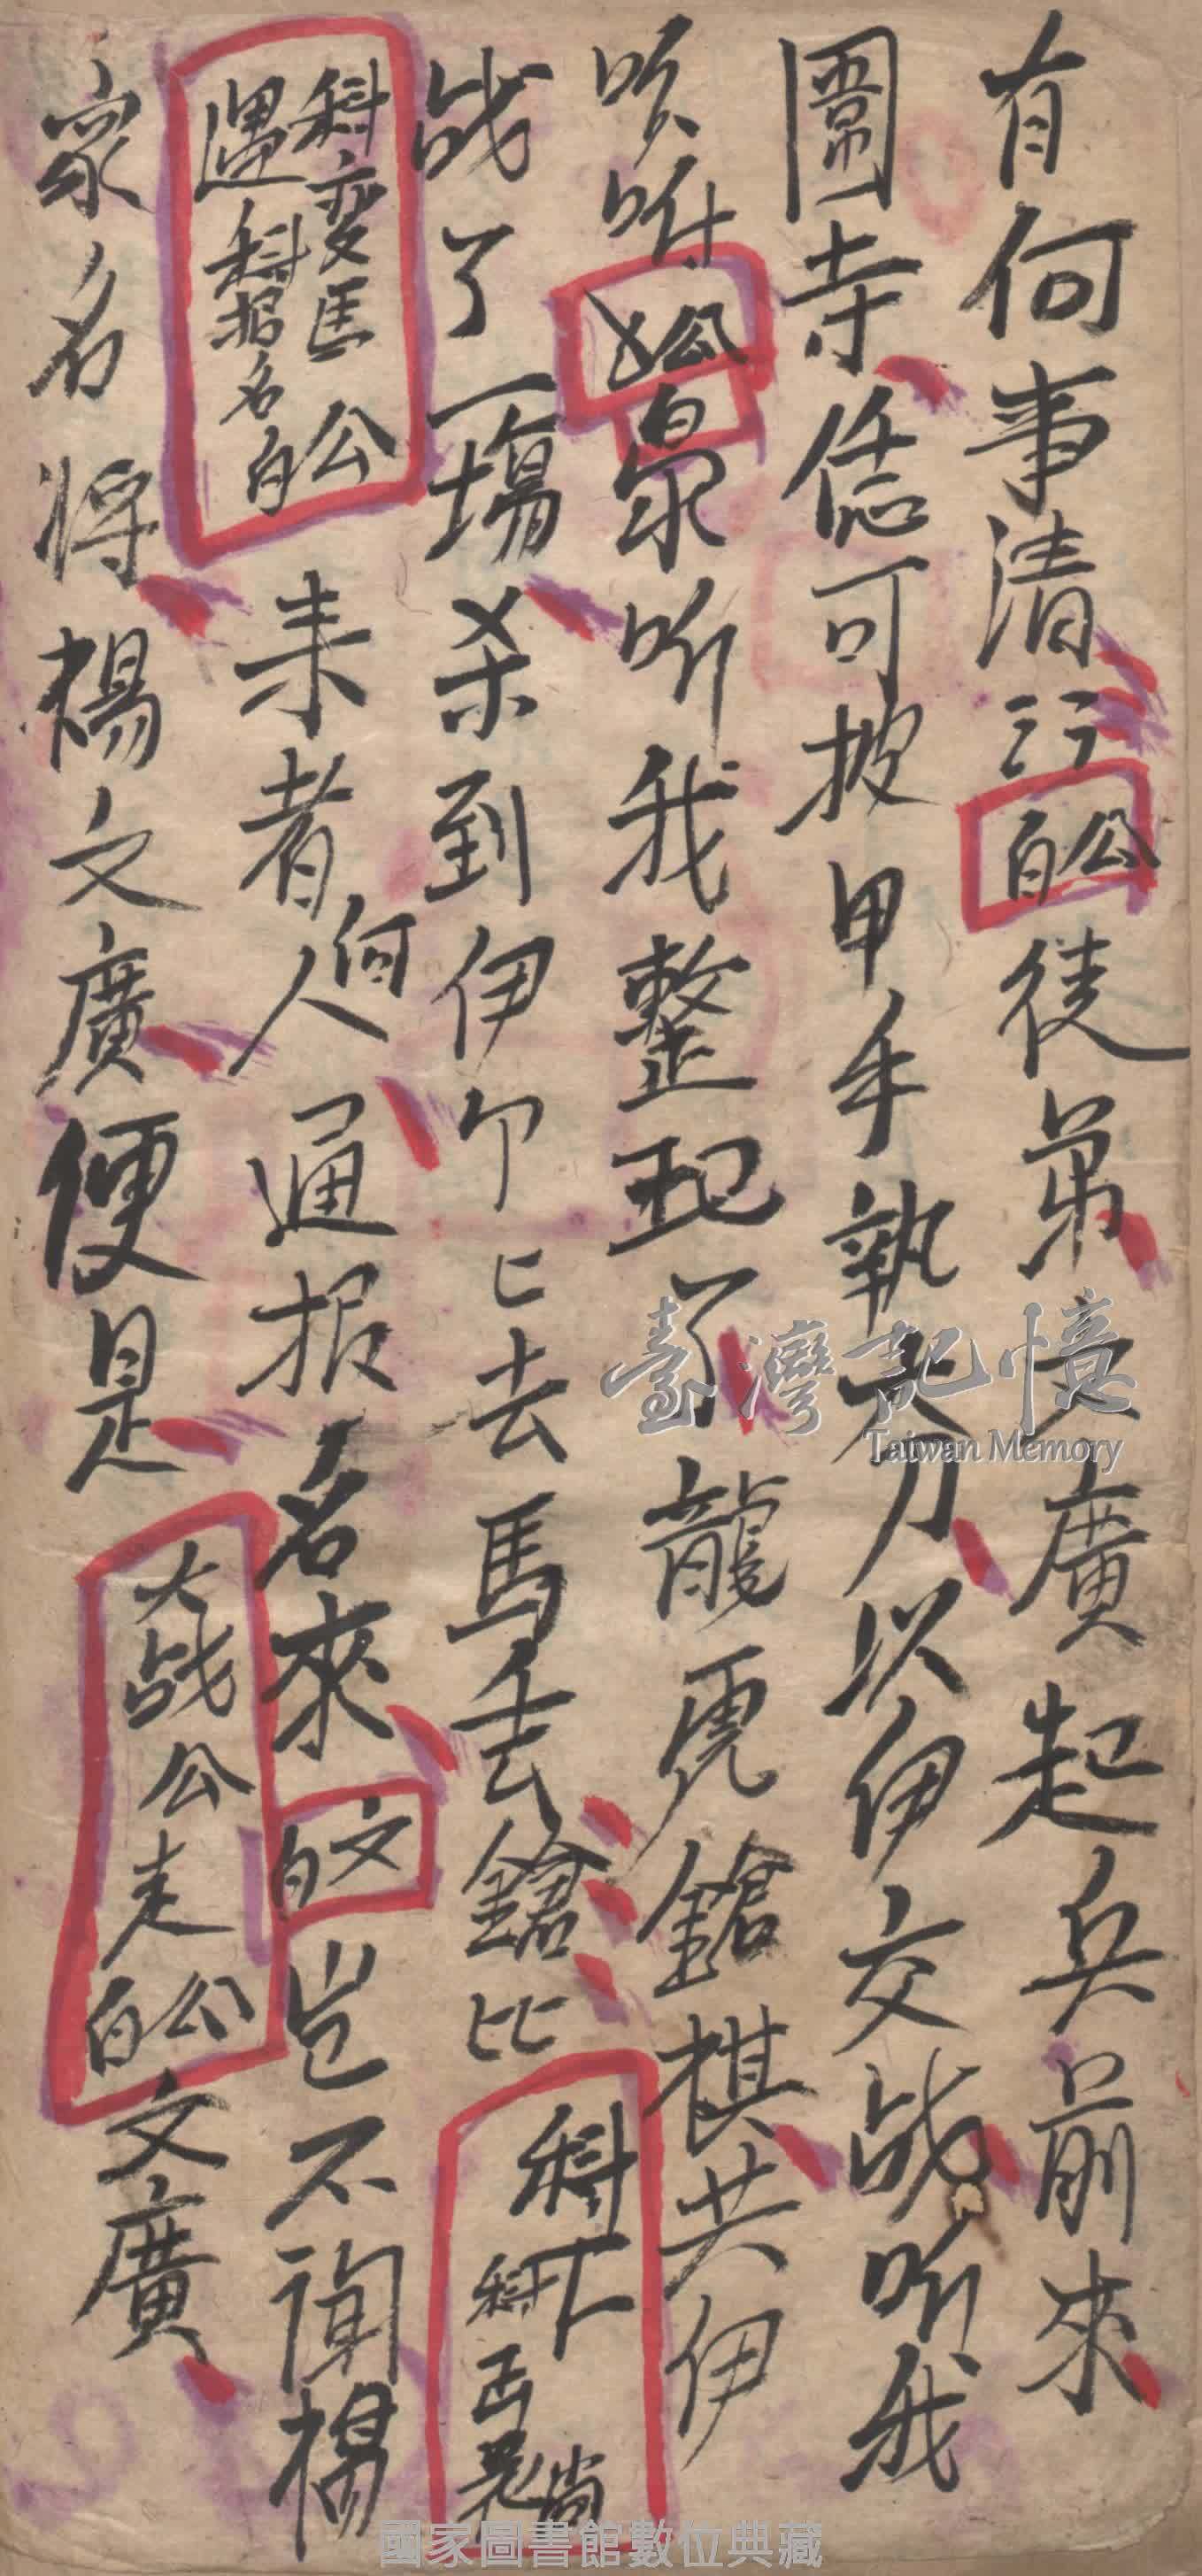 有何事清 公白 徒弟 文廣起兵前來
圍寺恁可披甲手執大刀以伊交战听我
吩咐 公白 众听我整 了龍虎鎗棋共伊
战了一場杀到伊 匕去馬去鎗比 科 科 尚
科 公 遇科报名白 来者何人通报名來 文白 岂不闻楊
家名将楊文廣便是 大战公走 公白 文廣
臺灣記憶
Taiwan Memory
國家圖書館數位典藏